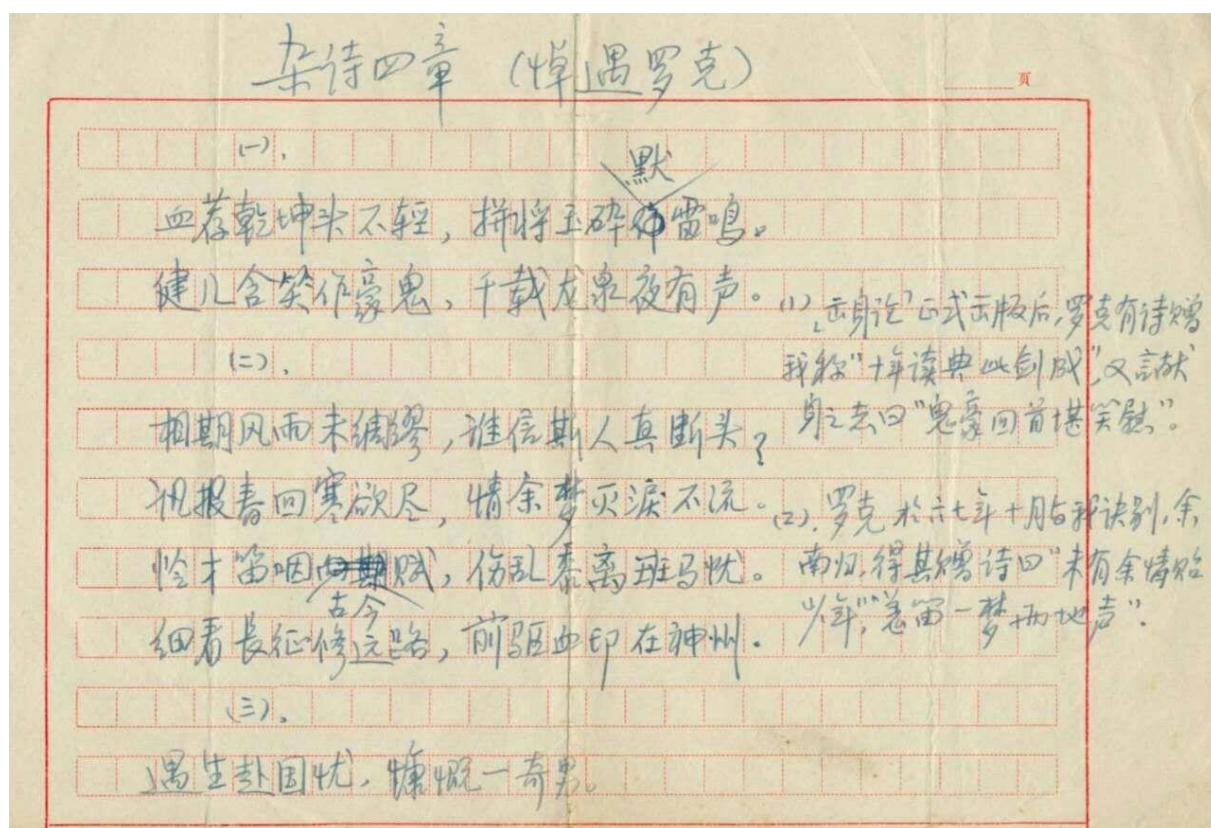 杂诗四章 (悼遇罗克)
页
(一).
默
血荐乾坤头不轻，拼将玉碎雷鸣。
健儿含笑作豪鬼，千载龙泉夜有声。
(二).
相期风雨未绸缪，谁信斯人真断头？
讯报春回寒欲尽，情余梦灭泪不流。
怜才笛咽赋，伤乱黍离班马忧。
古今
细看长征修远路，前驱血印在神州.
(三).
遇生赴国忧，慷慨一奇男。
(1)，“出身论”正式出版后，罗克有诗赠
我称“十年读典此剑成”，又言献
身之志曰“鬼豪回首堪笑慰”。
(2)．罗克於六七年十月与我诀别，余
南归，得其赠诗曰“未有余情贻
少年”，“羌笛一梦两地声”．